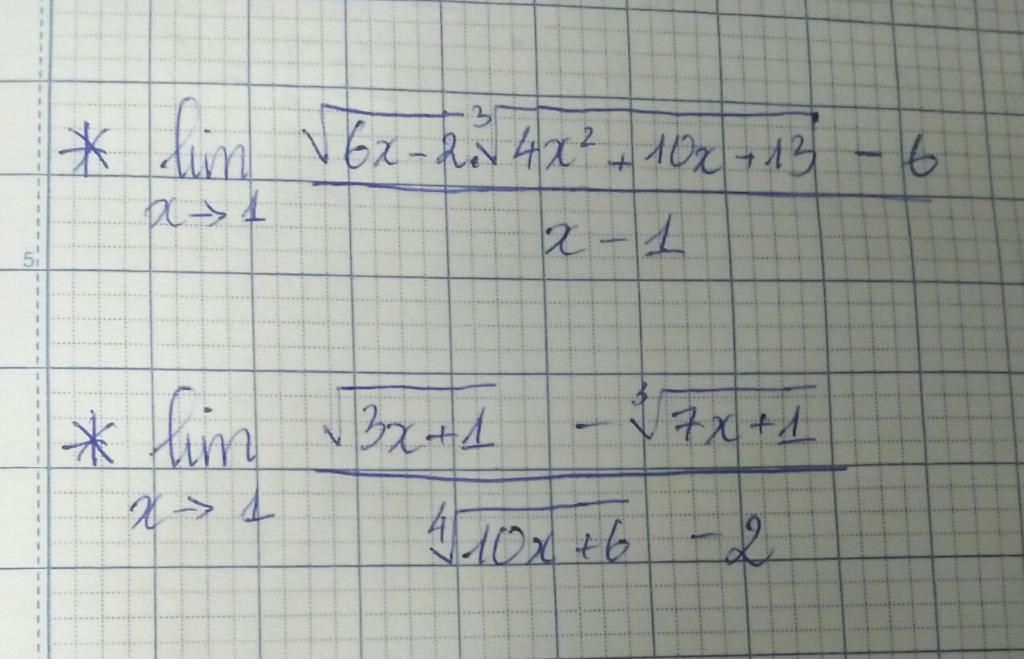 * lim x→1 (√(6x-2).∛(4x²+10x+13) - 6)/(x-1)
5
* lim x→1 (√(3x+1) - ∛(7x+1))/(∜(10x+6) - 2)